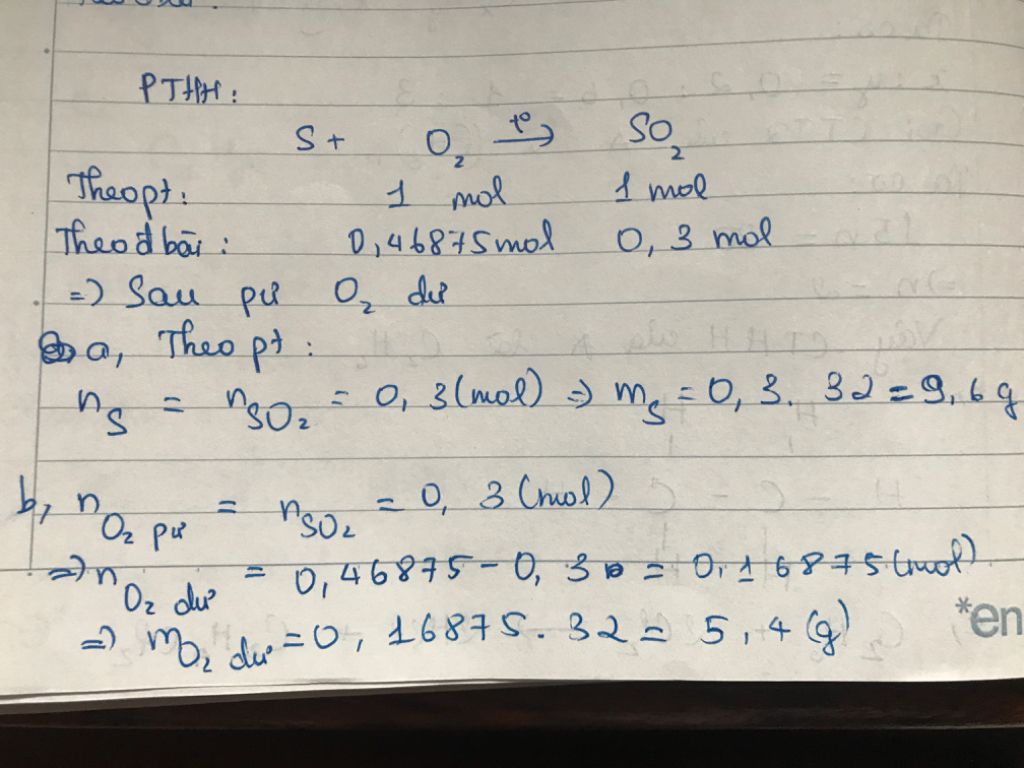 PTHH:
S + O₂ t° → SO₂
Theo pt: 1 mol 1 mol
Theo đ bài: 0,46875 mol 0,3 mol
=> Sau pư O₂ dư
a, Theo pt:
n_S = n_SO₂ = 0,3 (mol) => m_S = 0,3. 32 = 9,6 g
b, n_O₂ pư = n_SO₂ = 0,3 (mol)
=> n_O₂ dư = 0,46875 - 0,3 = 0,16875 (mol)
=> m_O₂ dư = 0,16875. 32 = 5,4 (g)
*en